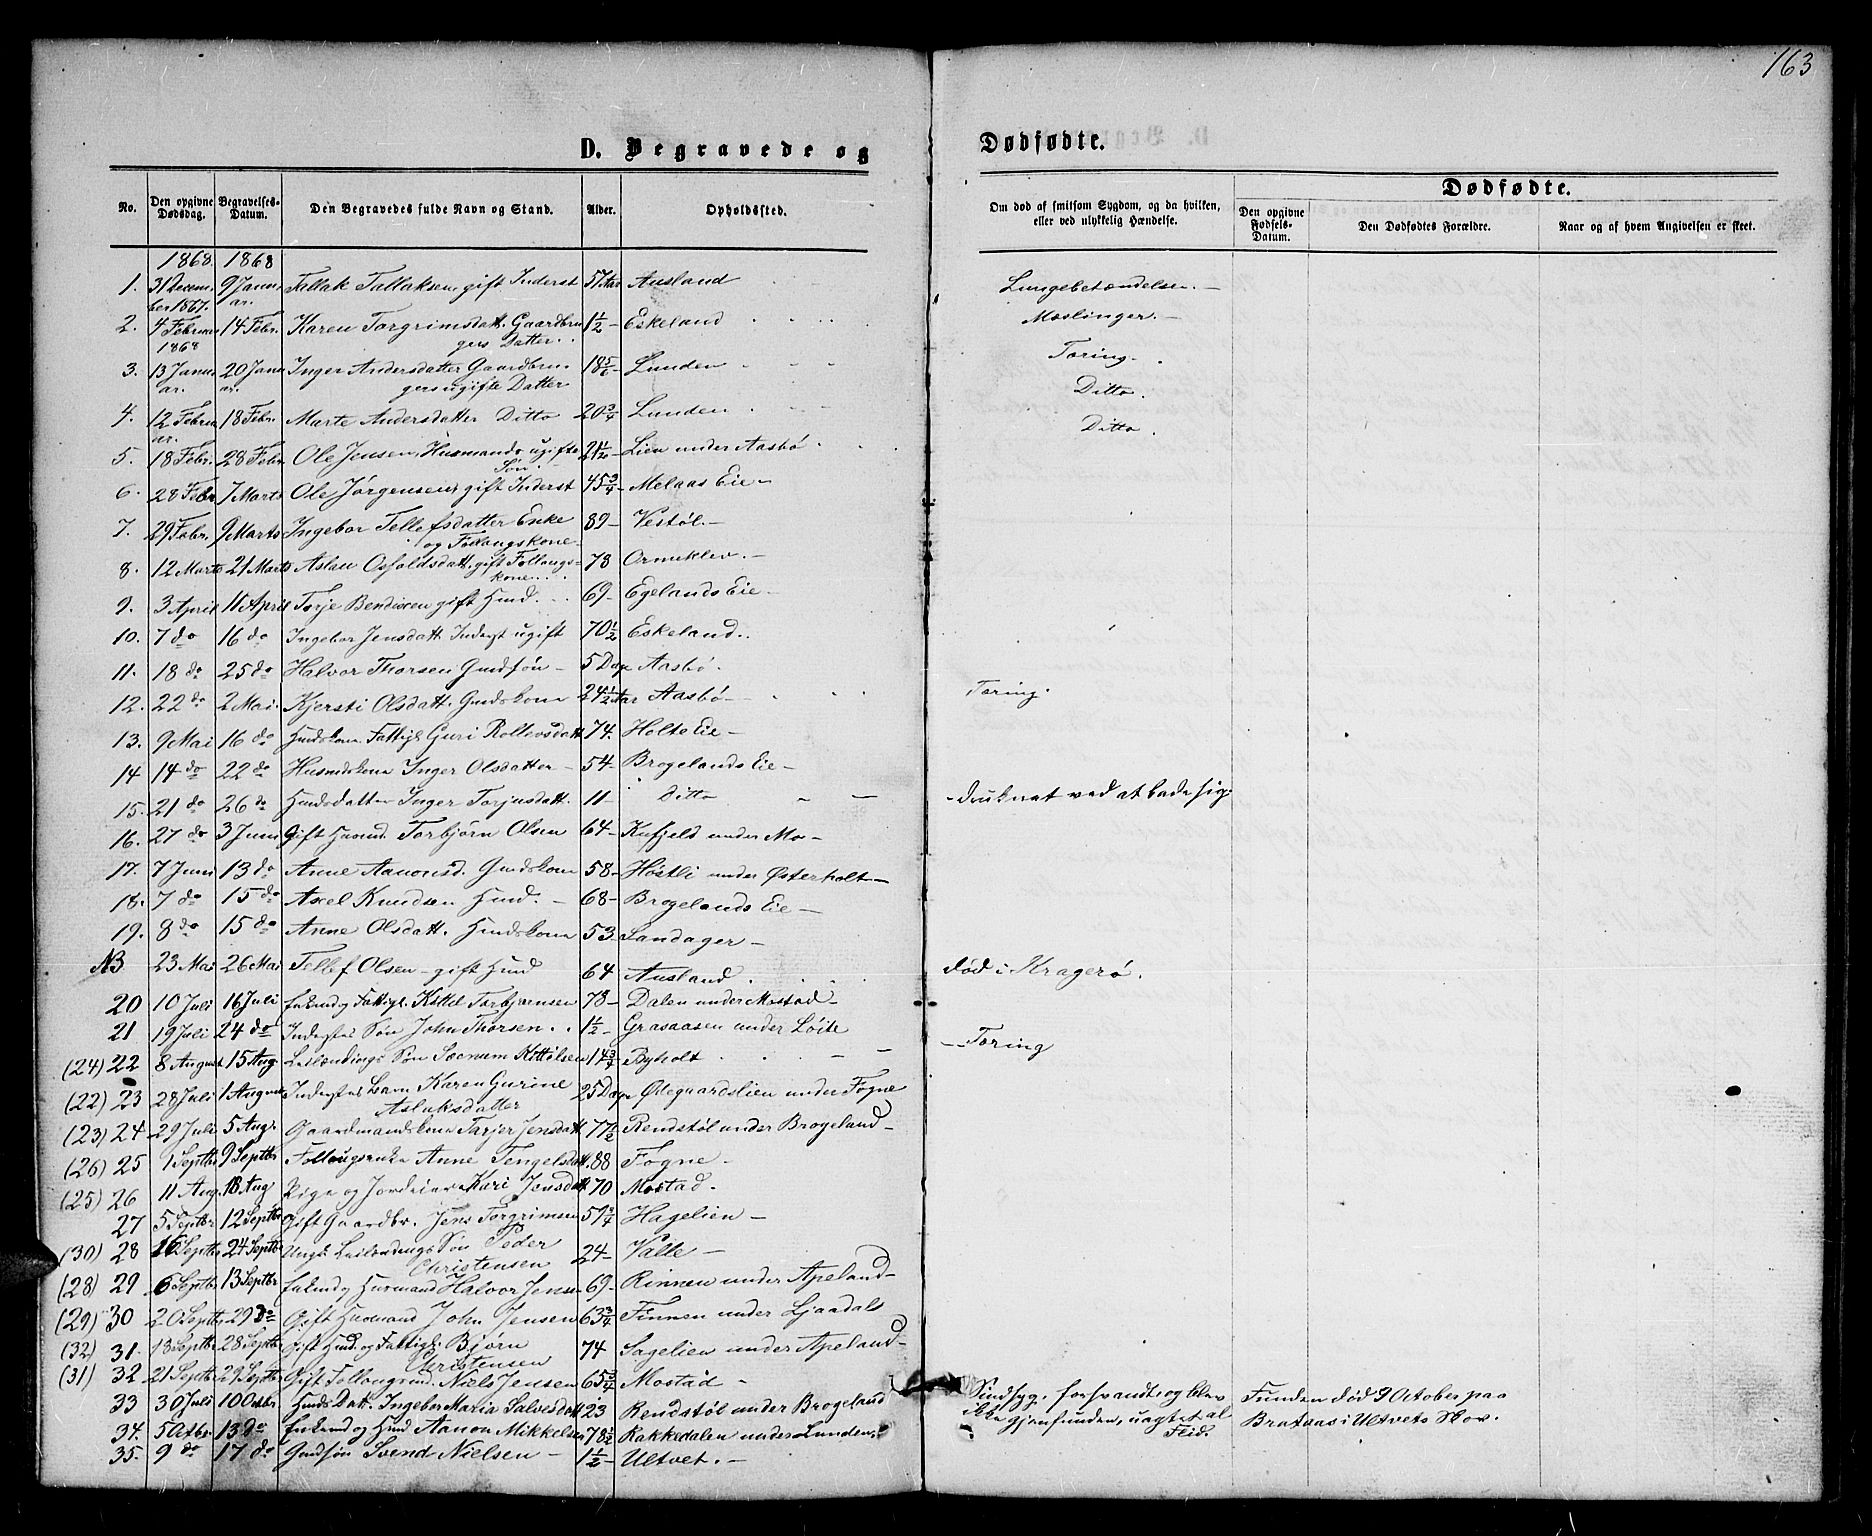 163
D. Begravede og Dødfødte.
No. Den opgivne Dødsdag. Begravelses-Datum. Den Begravedes fulde Navn og Stand. Alder. Opholdssted. Om død af smitsom Sygdom, og da hvilken, eller ved ulykkelig Hændelse. Dødfødte. Den opgivne Fødsels-Datum. Den Dødfødtes Forældre. Naar og af hvem Angivelsen er skeet.
1868. 1868
1. 31 Decem- 9 Janu- Tallak Tallaksen, gift Inderst 57 Aar Ausland Lungebetændelse. -
ber 1867. ar.
2. 4 Februar 14 Febr. Karen Torgrimsdatt. Gaardbru 1½ - Eskeland Mæslinger. -
1868 gers Datter.
3. 13 Janu 20 Janu Inger Andersdatter Gaardbru 18 5/6 Lunden Tæring.
ar. ar. gers ugifte Datter
4. 12 Febru 18 Febr. Marte Andersdatter Ditto 20¾ Lunden Ditto.
ar.
5. 18 Febr. 28 Febr. Ole Jensen, Husmands ugifte 21½ Lien under Aasbø Ditto.
Søn.
6. 28 Febr 7 Marts Ole Jørgensen, gift Inderst 45¾ - Melaas Eie -
7. 29 Febr. 9 Marts Ingebor Tellefsdatter Enke 89 - Vestøl. -
og Føllougskone
8. 12 Marts 21 Marts Aslau Osfoldsdatt. gift Føllougs- 78 Ormuklev. -
kone.
9. 3 April 11 April Torje Bendixen gift Husmd. 69 - Egelands Eie -
10. 7 do 16 do Ingebor Jensdatt. Inderst ugift 70½ Eskeland.
11. 18 do 25 do Halvor Thorsen Gmdssøn - 5 Dage Aasbø.
12. 22 do 2 Mai. Kjersti Olsdatt. Gmdskone 24½ Aar Aasbø - Tæring.
13. 9 Mai 16 do Husmdskone Fattigl. Guri Rollevsdatt 74. Holte Eie -
14 14 do 22 do Husmdskone Inger Olsdatter - 54 - Brogelands Eie -
15. 21 do 26 do Husmdsdatter Inger Torjusdatt. 11 - Ditto - - druknet ved at bade sig.
16. 27 do 3 Juni Gift Husmd. Torbjørn Olsen 64 - Kufjeld under Mo -
17. 7 Juni 13 do Anne Aanonsd. Gmdskone 58 - Høstli under Østerholt -
18. 7 do 15 do Axel Knudsen Husmd. - 68 - Brogelands Eie -
19. 8 do 15 do Anne Olsdatt. Husmdskone 53 Sandager -
NB 23 Mai 26 Mai Tellef Olsen - gift Husmd 64 Ausland død i Kragerø.
20 10 Juli 16 Juli Enkemd og Fattigl. Kittel Torbjørnsen 78 - Dalen under Mostad -
21 19 Juli 24 do Inderstes Søn John Thorsen. 1½ - Grasaasen under Løite
(24) 22 8 August 15 Aug. Leilændings Søn Gunnum Kittilsen 14¾ Byholt - - - Tæring
(22) 23 28 Juli 1 August Inderstes Barn Karen Gurine 25 Dage Ødegaardslien under Fogne
Aslaksdatter
(23) 24 29 Juli 5 Aug. Gaardmandskone Tarjer Jensdatt 77½ Rendstøl under Brogeland -
(26) 25 1 Septbr 9 Septbr Føllougsenke Anne Tengelsdatt. 88 Fogne -
(25) 26 11 Aug. 18 Aug Pige og Jordeier Kari Jensdatt 70 Mostad -
27 5 Septbr 12 Septbr Gift Gaardbr. Jens Torgrimsen 51¾ Hagelien -
(30) 28 16 Septbr 24 Septbr Ungk. Leilændings Søn Peder 24 - Valle -
Christensen
(28) 29 6 Septbr 13 Septbr Enkemd og Husmand Halvor Jensen 69 - Rinnen under Apeland -
(29) 30 20 Septbr 29 do Gift Husmand John Jensen 63¾ Finnen under Ljaadals
(32) 31. 18 Septbr 28 Septbr Gift Husmd. og Fattigl. Bjørn 74 Sagelien under Apeland -
Christensen
(31) 32 21 Septbr 29 Septbr Gift Føllougsmd. Niels Jensen 65¾ Mostad -
33 30 Juli 10 Octbr. Husmds Datt. Ingebor Maria Salvesdatt 23 Rendstøl under Brogeland Sindsyg, forsvandt og blev Funden død 9 October paa
ikke gjenfunden, uagtet al Brataas i Ultvets Skov.
Flid.
34. 5 Octbr. 13 do Enkemd og Husmd Aanon Mikkelsen 78½ Rakkedalen under Lunden
35. 9 do 17 do Gmdssøn Svend Nielsen - 1½ - Ultvet. -